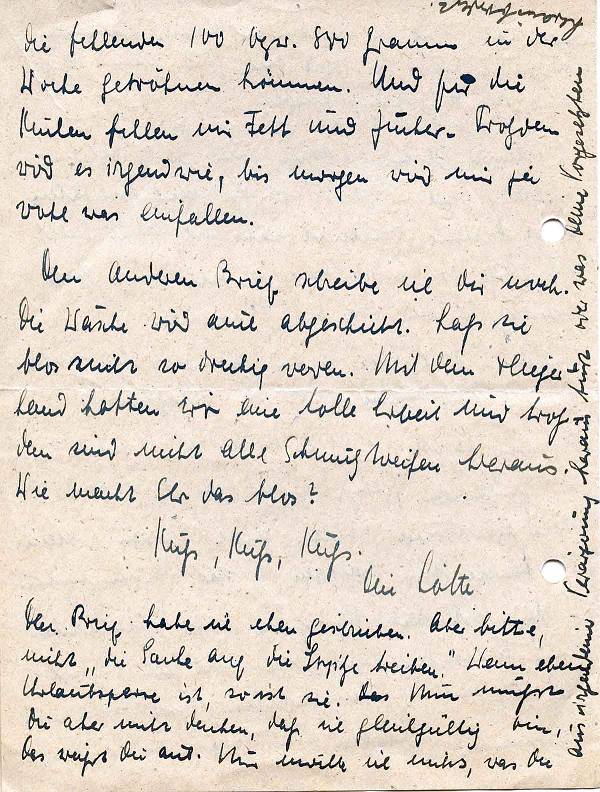 die fehlenden 100 bzw. 800 Gramm in der
Woche getröhnen können. Und für die
fehlen mir Fett und Zucker. Trotzdem
wird es irgendwie, bis morgen wird mir
was einfallen.
Den anderen Brief schreibe ich dir noch.
Die Wäsche wird auch abgeschickt. Laß sie
blos nicht so dreckig werden. Mit dem Flieger
hemd hatten wir eine tolle Arbeit und trotz
dem sind nicht alle Schmutzstreifen heraus
Wie macht Ihr das blos?
Kuß, Kuß, Kuß.
Dei Lotte
Den Brief habe ich eben geschrieben. Aber bitte,
nicht „die Sache auf die Spitze treiben." Wenn eben
Urlaubssperre ist, so ist sie. Das Nun mußt
Du aber nicht denken, daß ich gleichgültig bin,
das weißt Du auch. Nur möchte ich nichts, was Du
aus irgendeiner heraus tust oder was deine Vorgesetzten
herausfordert.